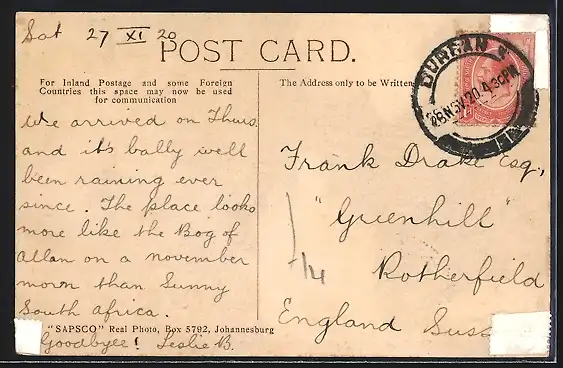 Sat 27 XI 20
POST CARD.
For Inland Postage and some Foreign
Countries this space may now be used
for communication
The Address only to be Written
DURBAN
26 NOV 20 4 30PM
We arrived on Thurs.
and it's bally well
been raining ever
since. The place looks
more like the Bog of
Allan on a november
morn than Sunny
South Africa.
"SAPSCO" Real Photo, Box 5792, Johannesburg
Goodbyee! Leslie B.
Frank Drake Esq.,
"Greenhill"
Rotherfield
England Suss
1/4